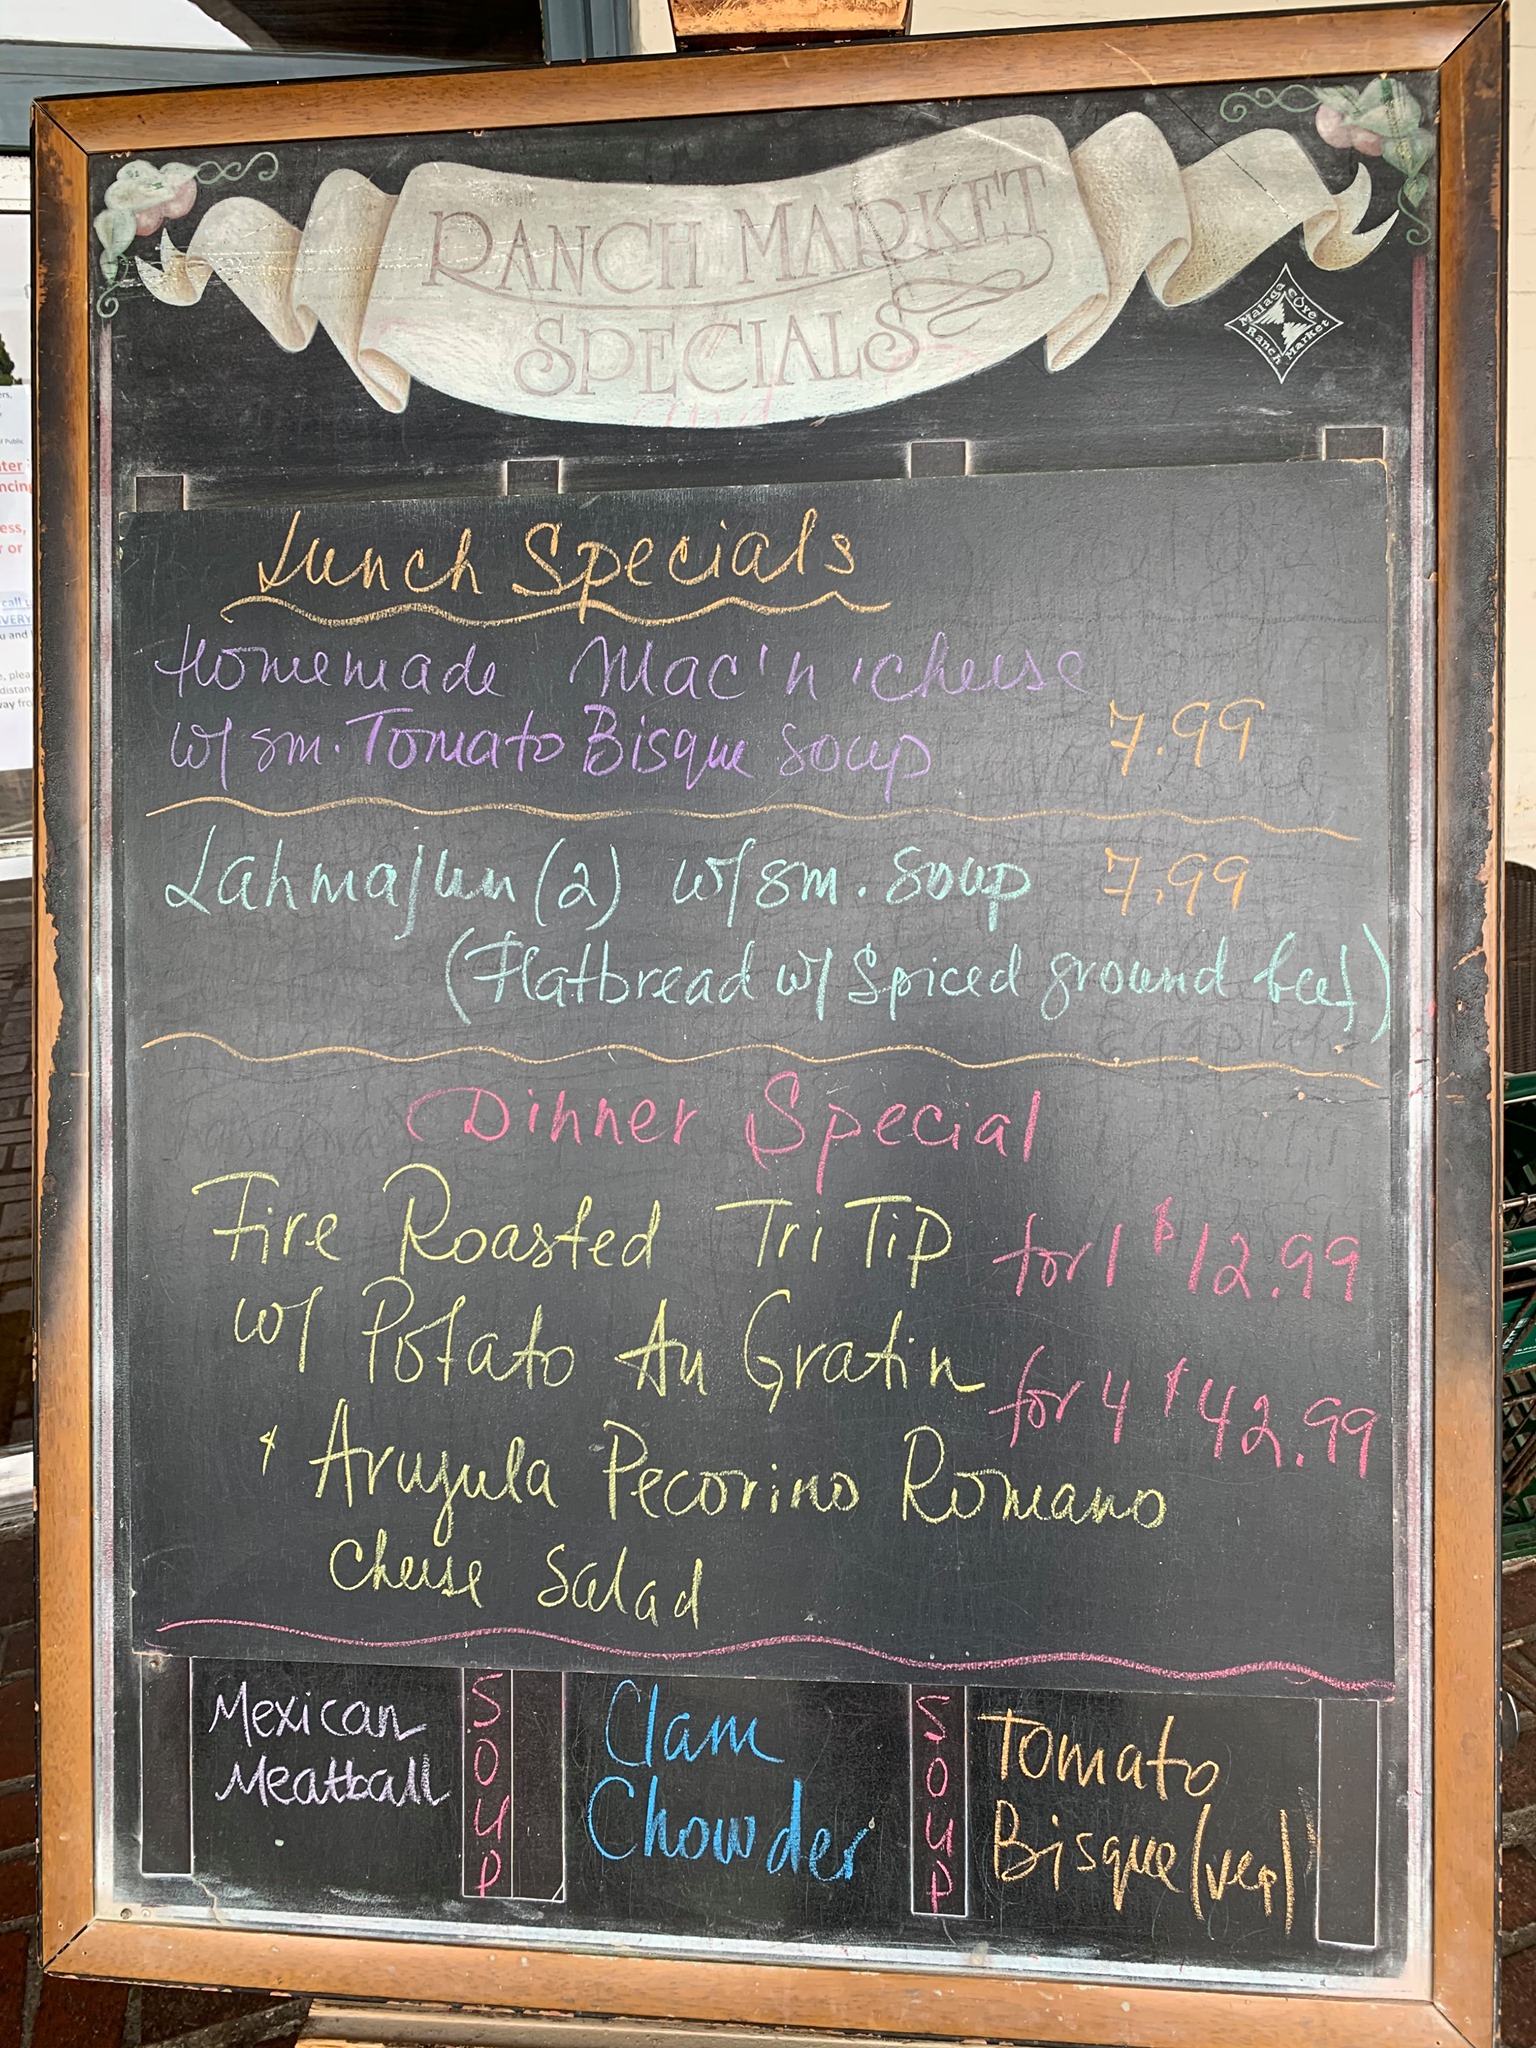 RANCH MARKET
SPECIALS
Malaga Cove
Ranch Market
Lunch Specials
Homemade Mac'n'cheese
w/ sm. Tomato Bisque Soup 7.99
Lahmajun (2) w/ sm. soup 7.99
(Flatbread w/ Spiced ground beef)
Dinner Special
Fire Roasted Tri Tip for 1 $12.99
w/ Potato Au Gratin for 4 $42.99
& Arugula Pecorino Romano
Cheese Salad
Mexican
Meatball
SOUP
Clam
Chowder
SOUP
Tomato
Bisque (veg)